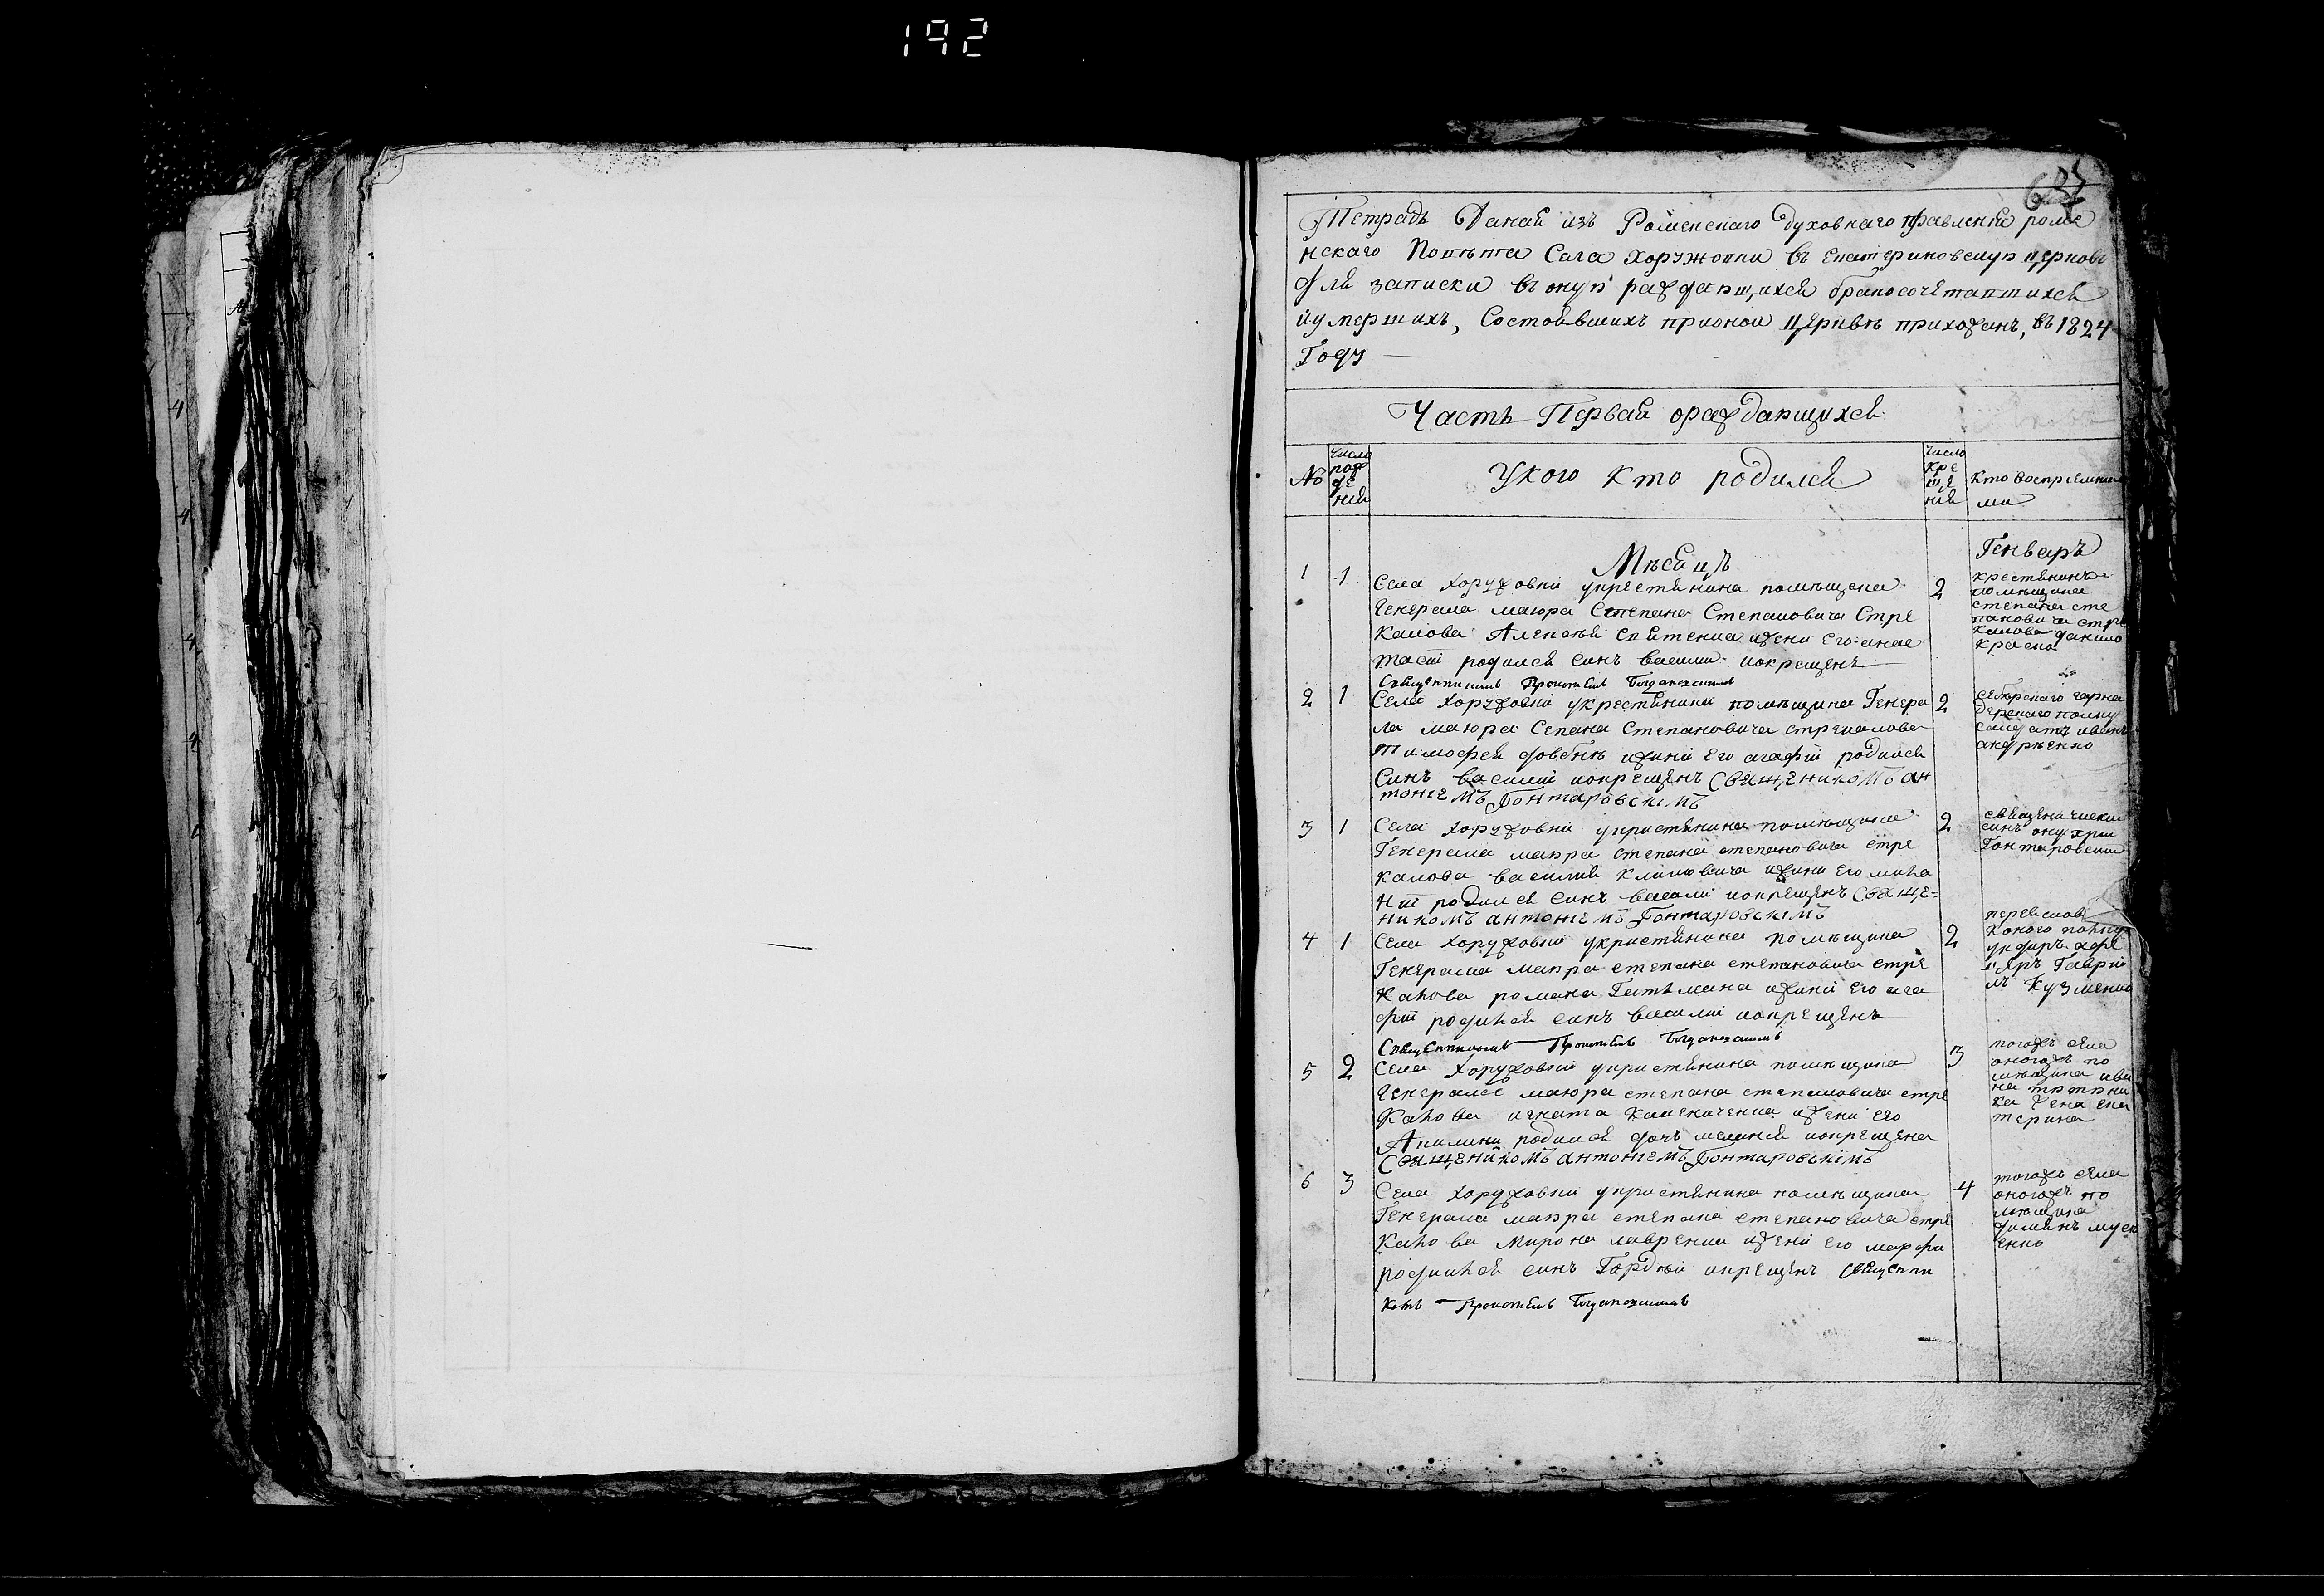 192
Тетрадь Даная изъ Роменскаго духовнаго правленія роме
нскаго Повѣта Села Хоружовки въ екатериновскую церковь
для записки въ оную раждающихся бракосочетавшихся
иумершихъ, Состоявшихъприоной церквѣ прихожанъ, въ 1824
Году
Часть Первая ораждающихся
№
Число рож де нія
Укого кто родился
Число кре ще нія
Кто воспріемни
ми
Мѣсяцъ
Генваръ
1 1 Села хоружовки укрестянина помѣщика 2
Генерала маюра Степана Степановича Стре
калова Алексѣя жени его анас
тасіи родился синъ василій и покрещенъ
Священникомъ
крестянинъ
помѣщика
степана сте
пановича стре
калова данило
красно
2 1 Села Хоружовки укрестянина помѣщика Генера 2
ла маюра Сепана Степановича стрекалова
тимофея довбнѣ ижини его агафіи родился
Синъ василій ипокрещенъ Священикомъ ан
тоніемъ Гонтаровскімъ
полку
салдатъ иванъ
3 1 Села хоружовки укристянина помѣщика 2
Генерала маюра степана степановича стре
калова василия климовича ижини его мила
нии родился синъ василій ипокрещенъ Свяще=
никомъ антоніемъ Гонтаровскімъ
синъ
Гонтаровски
4 1 Села хоружовки укристянина помѣщика 2
Генерала маюра степана степановича стре
калова романа Гетмана ижини его ага
фіи родился синъ василій ипокрещенъ
Священникомъ
ундиръ офе
церъ Гаврии
лъ Кузменко
5 2 Села Хоружовки укристянина помѣщика 3
Генерала маюра степана степановича стре
калова игната жени его
Акилини родилася дочъ меланія ипокрещена
Священикомъ антоніемъ Гонтаровскімъ
тогожъ села
оногожъ по
мѣщика ива
на
ка жена ека
терина
6 3 Села хоружовки укристянина помѣщика 4
Генерала маюра степана степановича стре
калова Мирона лавренка жени его марфи
родился синъ Гордѣй икрещенъ священни
комъ
тогожъ села
оногожъ по
мѣщика
енко